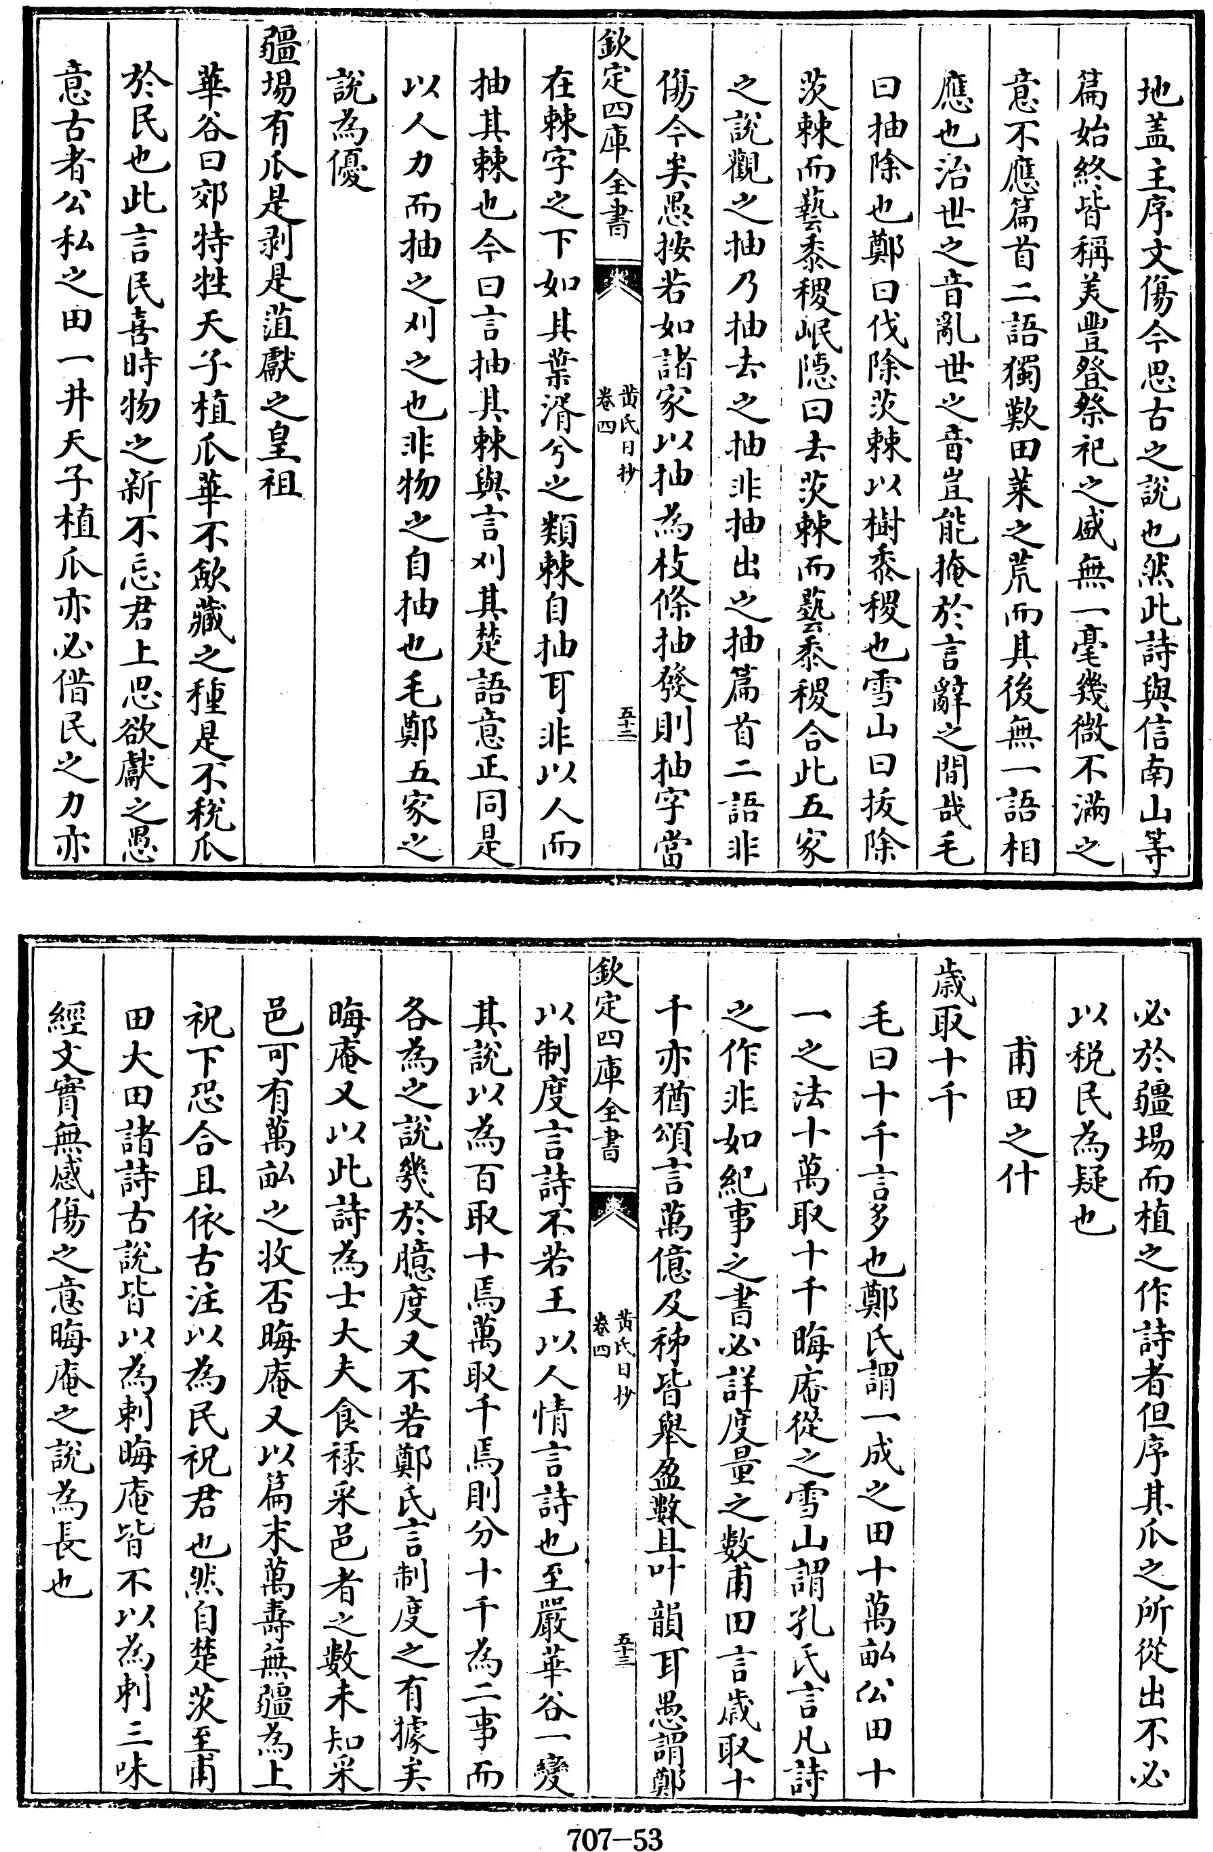 地盖主序文傷今思古之說也然此詩與信南山等
篇始終皆稱美豐登祭祀之盛無一毫幾微不滿之
意不應篇首二語獨歎田萊之荒而其後無一語相
應也治世之音亂世之音豈能掩於言辭之間哉毛
曰抽除也鄭曰伐除茨棘以樹黍稷也雪山曰拔除
茨棘而藝黍稷岷隱曰去茨棘而藝黍稷合此五家
之說觀之抽乃抽去之抽非抽出之抽篇首二語非
傷今矣愚按若如諸家以抽為枝條抽發則抽字當
欽定四庫全書
黄氏日抄
卷四
五十二
在棘字之下如其葉湑兮之類棘自抽耳非以人而
抽其棘也今曰言抽其棘與言刈其楚語意正同是
以人力而抽之刈之也非物之自抽也毛鄭五家之
說為優
疆埸有瓜是剥是菹獻之皇祖
華谷曰郊特牲天子植瓜華不斂藏之種是不稅瓜
於民也此言民喜時物之新不忘君上思欲獻之愚
意古者公私之田一井天子植瓜亦必借民之力亦
必於疆埸而植之作詩者但序其瓜之所從出不必
以税民為疑也
甫田之什
歲取十千
毛曰十千言多也鄭氏謂一成之田十萬畝公田十
一之法十萬取十千晦庵從之雪山謂孔氏言凡詩
之作非如紀事之書必詳度量之數甫田言歲取十
千亦猶頌言萬億及秭皆舉盈數且叶韻耳愚謂鄭
欽定四庫全書
黄氏日抄
卷四
五十三
以制度言詩不若王以人情言詩也至嚴華谷一變
其說以為百取十焉萬取千焉則分十千為二事而
各為之說幾於臆度又不若鄭氏言制度之有據矣
晦庵又以此詩為士大夫食祿采邑者之數未知采
邑可有萬畝之收否晦庵又以篇末萬壽無疆為上
祝下恐合且依古注以為民祝君也然自楚茨至甫
田大田諸詩古說皆以為刺晦庵皆不以為刺三味
經文實無感傷之意晦庵之說為長也
707-53